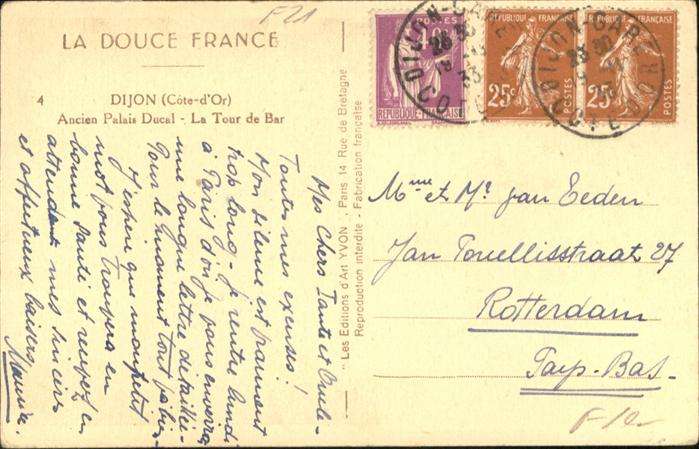 F21
LA DOUCE FRANCE
4
DIJON (Côte-d'Or)
Ancien Palais Ducal - La Tour de Bar
Mes chers Tante et Oncle -
Toutes mes excuses !
Mon silence est vraiment
trop long - Je rentre lundi
à Paris d'où je vous enverrai
une longue lettre détaillée -
Pour le moment tout va bien
J'espère que mon petit
mot vous trouvera en
bonne santé et voyez en
attendant mes sincères
et affectueux baisers
Maurice
"Les Editions d'Art YVON", Paris 14 Rue de Bretagne
Reproduction interdite - Fabrication française
POSTES
REPUBLIQUE FRANÇAISE
REPUBLIQUE FRANÇAISE
25c
POSTES
REPUBLIQUE FRANÇAISE
25c
POSTES
DIJON-GARE
COTE D'OR
DIJON-GARE
COTE D'OR
Mme et Mr. van Eeden
Jan
Rotterdam
Pays-Bas -